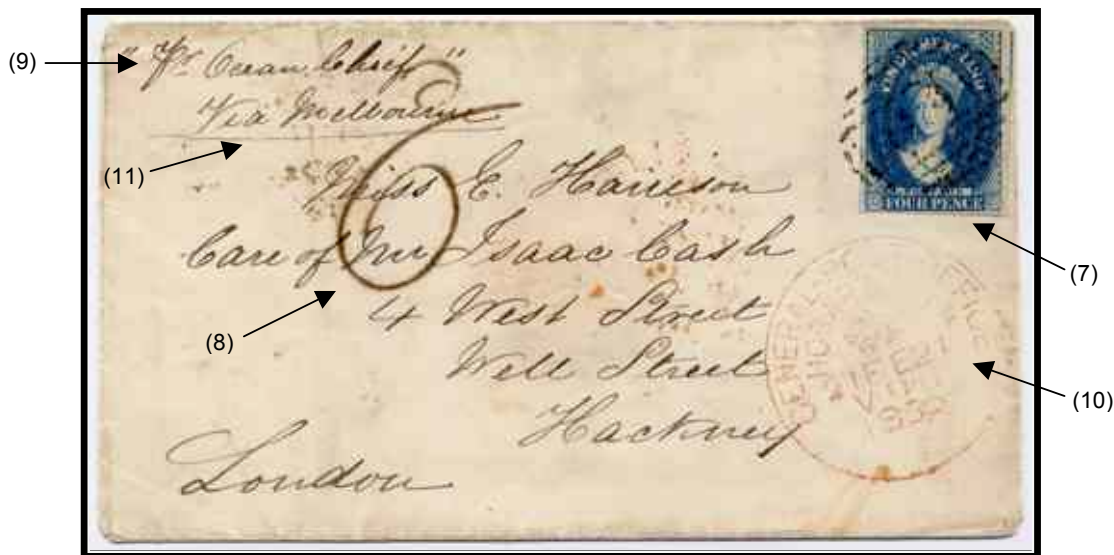 (9)
"Pr Ocean Chief"
Via Melbourne
(11)
6
Miss E. Harrison
Care of Mr Isaac Cash
4 West Street
Well Street
Hackney
London
(8)
VAN DIEMEN'S LAND
FOUR PENCE
(7)
GENERAL
(10)